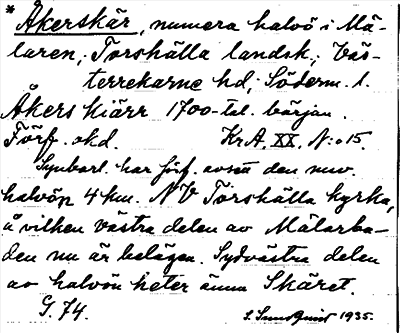 * Åkerskär, numera halvö i Mä-
laren, Torshälla landsk., Väs-
terrekarne hd, Söderm. l.
Åkers Kiärr 1700-tal. början.
Förf. okd. Kr.A. XX, N:o 15
Synbarl. har förf. avsett den nuv.
halvön 4 km. NV Torshälla kyrka,
å vilken västra delen av Mälarba-
den nu är belägen. Sydvästra delen
av halvön heter ännu Skäret.
G. 74. S. Sundquist 1935.